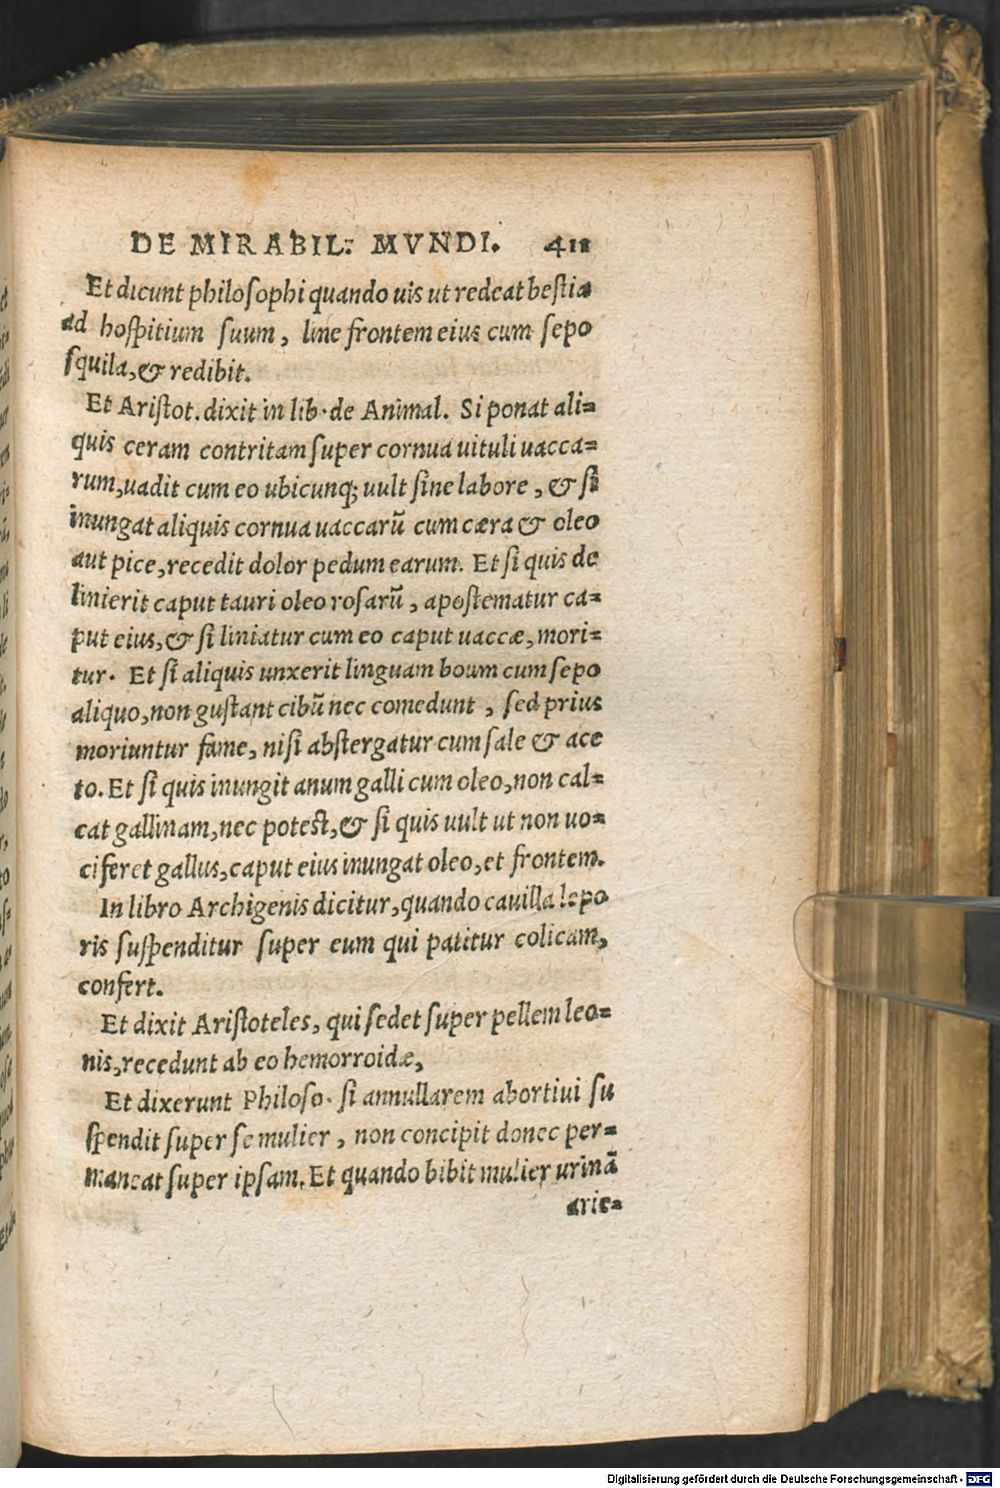 DE MIRABIL: MVNDI. 411
Et dicunt philosophi quando uis ut redeat bestia
ad hospitium suum, line frontem eius cum sepo
squila, & redibit.
Et Aristot. dixit in lib. de Animal. Si ponat ali=
quis ceram contritam super cornua uituli uacca=
rum, uadit cum eo ubicunq; uult sine labore, & si
inungat aliquis cornua uaccarū cum cæra & oleo
aut pice, recedit dolor pedum earum. Et si quis de
linierit caput tauri oleo rosarū, apostematur ca=
put eius, & si liniatur cum eo caput uaccæ, mori=
tur. Et si aliquis unxerit linguam boum cum sepo
aliquo, non gustant cibū nec comedunt, sed prius
moriuntur fame, nisi abstergatur cum sale & ace
to. Et si quis inungit anum galli cum oleo, non cal=
cat gallinam, nec potest, & si quis uult ut non uo=
ciferet gallus, caput eius inungat oleo, et frontem.
In libro Archigenis dicitur, quando cauilla lepo
ris suspenditur super eum qui patitur colicam,
confert.
Et dixit Aristoteles, qui sedet super pellem leo=
nis, recedunt ab eo hemorroidæ,
Et dixerunt Philoso. si annullarem abortiui su
spendit super se mulier, non concipit donec per=
maneat super ipsam. Et quando bibit mulier urinā
arie=
Digitalisierung gefördert durch die Deutsche Forschungsgemeinschaft - DFG